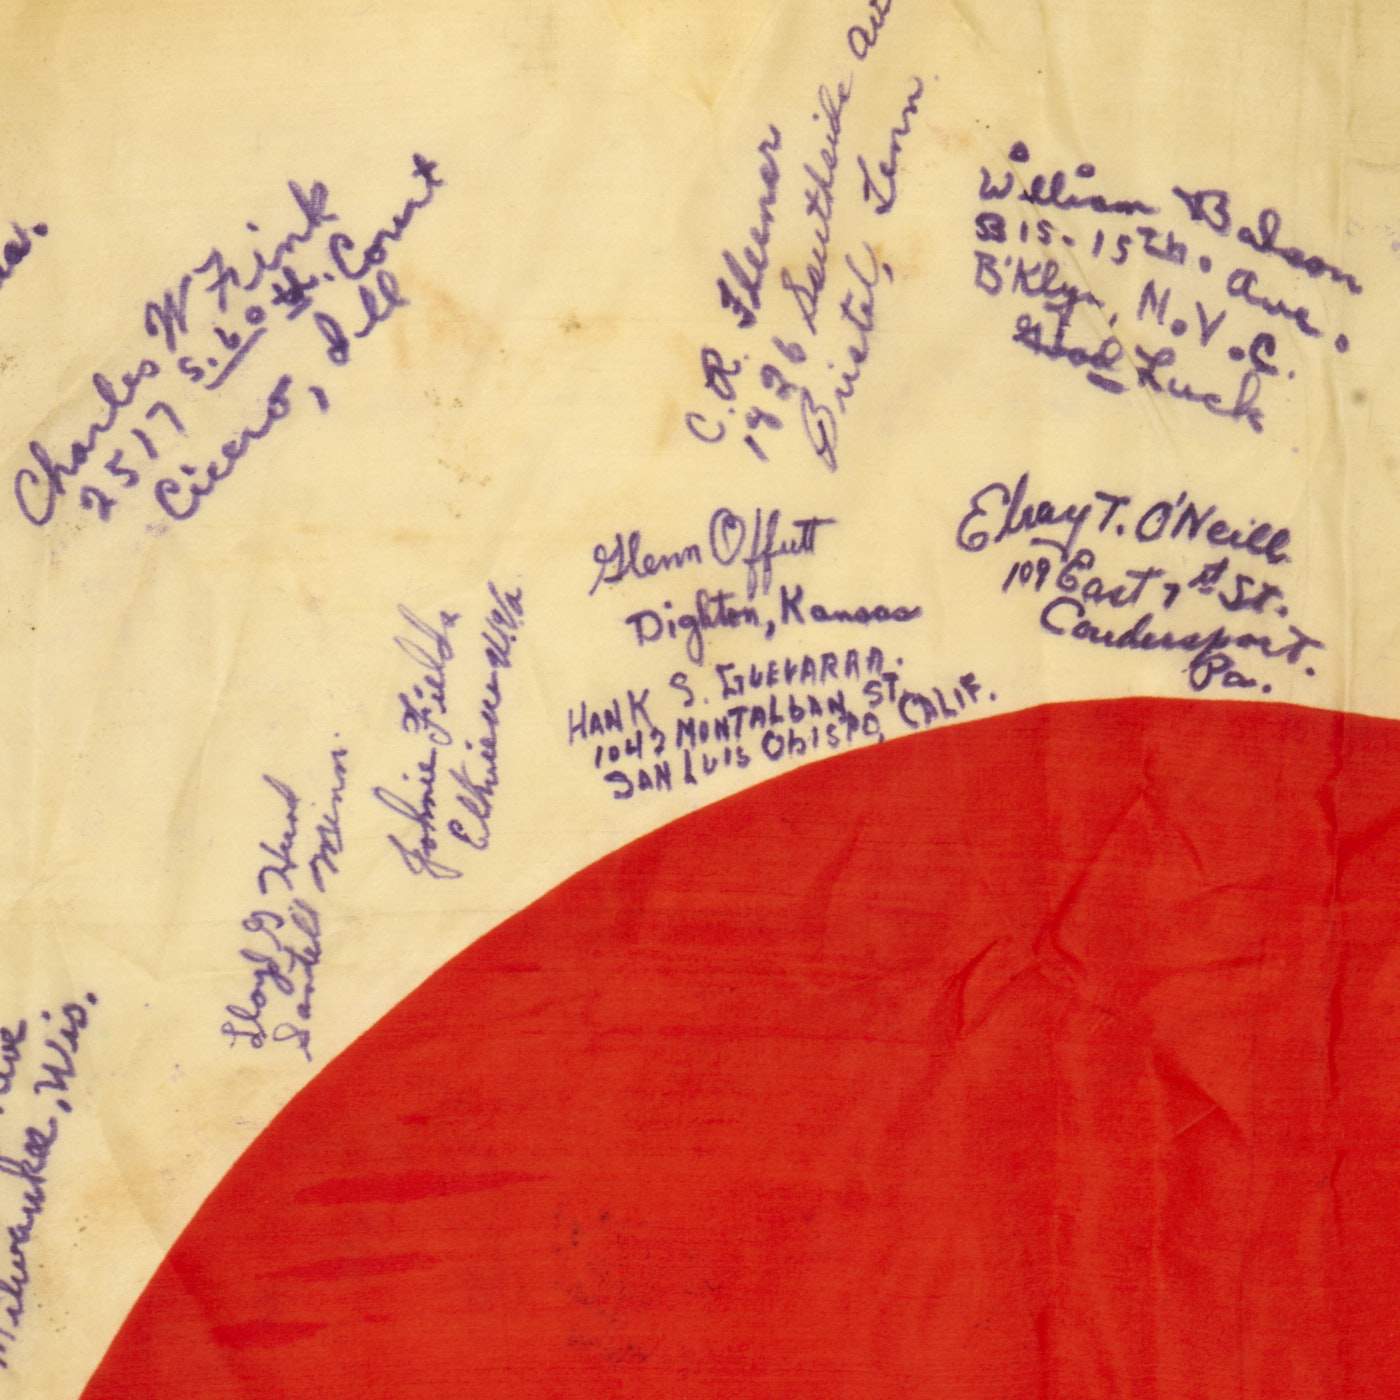 Charles W Fink
2517 S. 60 th. Court
Cicero, Ill
C. R. Fleenor
1926 Southside
Bristol, Tenn.
William Balson
5315-15th. Ave.
B'Klyn, N.Y.C.
Good Luck
Elray T. O'Neill
109 East 7th St.
Coudersport.
Pa.
Glenn Offutt
Dighton, Kansas
HANK S. GUEVARRA.
1042 MONTALBAN ST.
SAN LUIS ObISPO, CALIF.
Johnie Fields
W.Va.
Lloyd G Hunt
Minn.
Ave
Milwaukee, Wis.